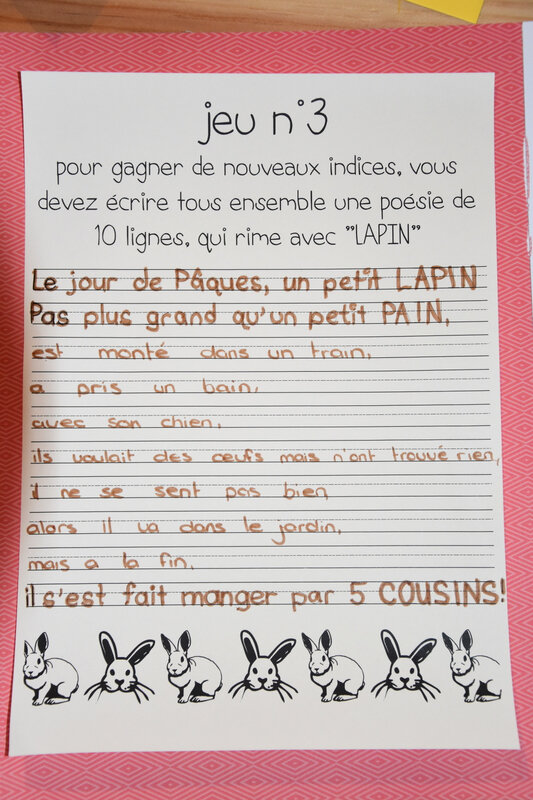 jeu n°3
pour gagner de nouveaux indices, vous
devez écrire tous ensemble une poésie de
10 lignes, qui rime avec "LAPIN"
Le jour de Pâques, un petit LAPIN
Pas plus grand qu'un petit PAIN,
est monté dans un train,
a pris un bain,
avec son chien,
ils voulait des œufs mais n'ont trouvé rien,
il ne se sent pas bien
alors il va dans le jardin,
mais a la fin,
il s'est fait manger par 5 COUSINS!